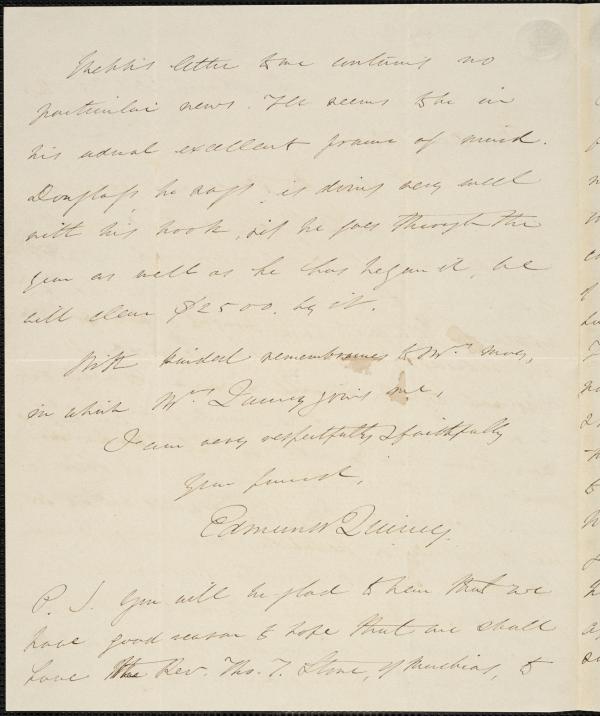 Webb's letter to me contains no
particular news. He seems to be in
his usual excellent frame of mind.
Douglass he says, is doing very well
with his book, & if he goes through the
year as well as he has begun it, he
will clear $2500. by it.
With kindest remembrances to Mrs. May,
in which Mrs. Quincy joins me,
I am very respectfully & faithfully
Your friend,
Edmund Quincy.
P. S. You will be glad to hear that we
have good reason to hope that we shall
have the Rev. Tho. T. Stone, of Machias, to